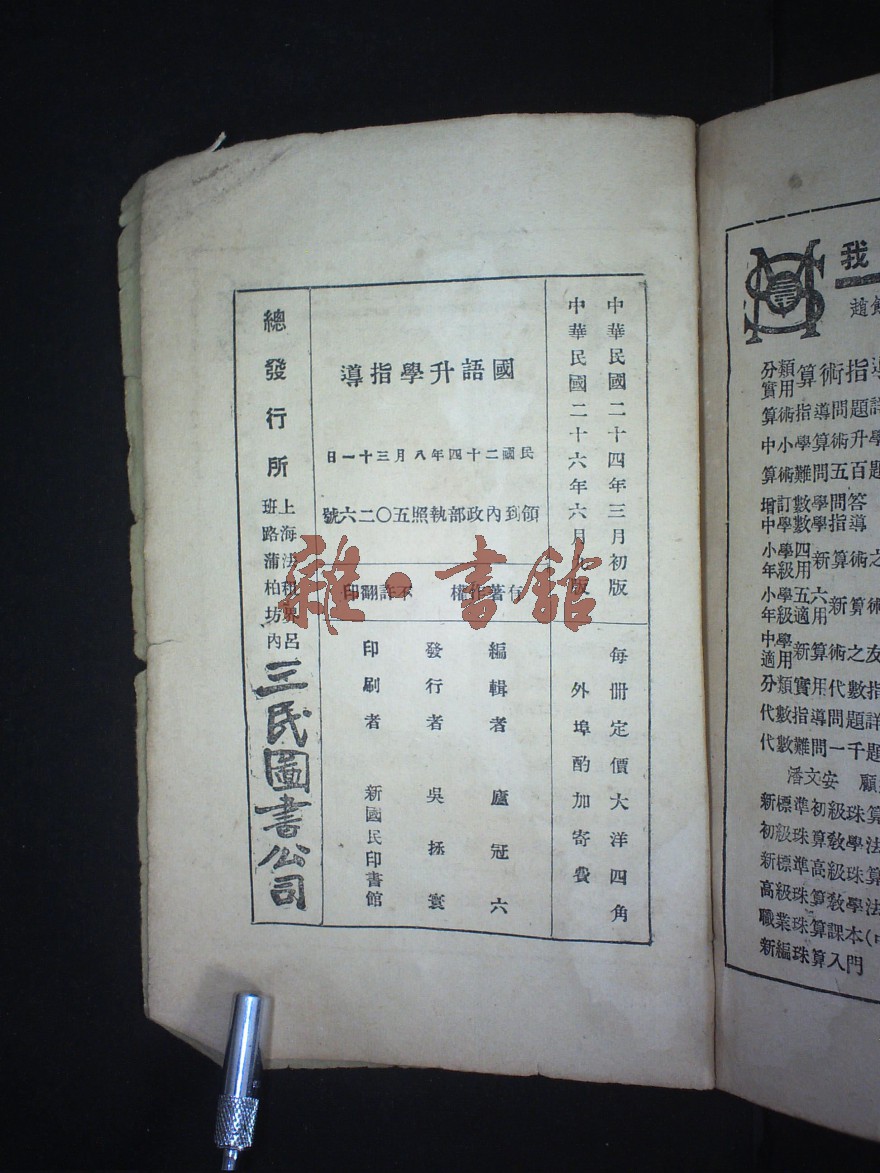 中華民國二十四年三月初版
中華民國二十六年六月 版
每冊定價大洋四角
外埠酌加寄費
國語升學指導
民國二十四年八月三十一日
領到內政部執照五〇二六號
有著作權 不許翻印
編輯者 盧冠六
發行者 吳拯寰
印刷者 新國民印書館
總發行所
上海法租界呂
班路蒲柏坊內
三民圖書公司
雜·書館
我
趙
分類實用算術指導
算術指導問題詳
中小學算術升學
算術難問五百題
增訂數學問答
中學數學指導
小學四年級用新算術之
小學五六年級適用新算術
中學適用新算術之友
分類實用代數指
代數指導問題詳
代數難問一千題
潘文安 顧
新標準初級珠算
初級珠算教學法
新標準高級珠算
高級珠算教學法
職業珠算課本(中
新編珠算入門